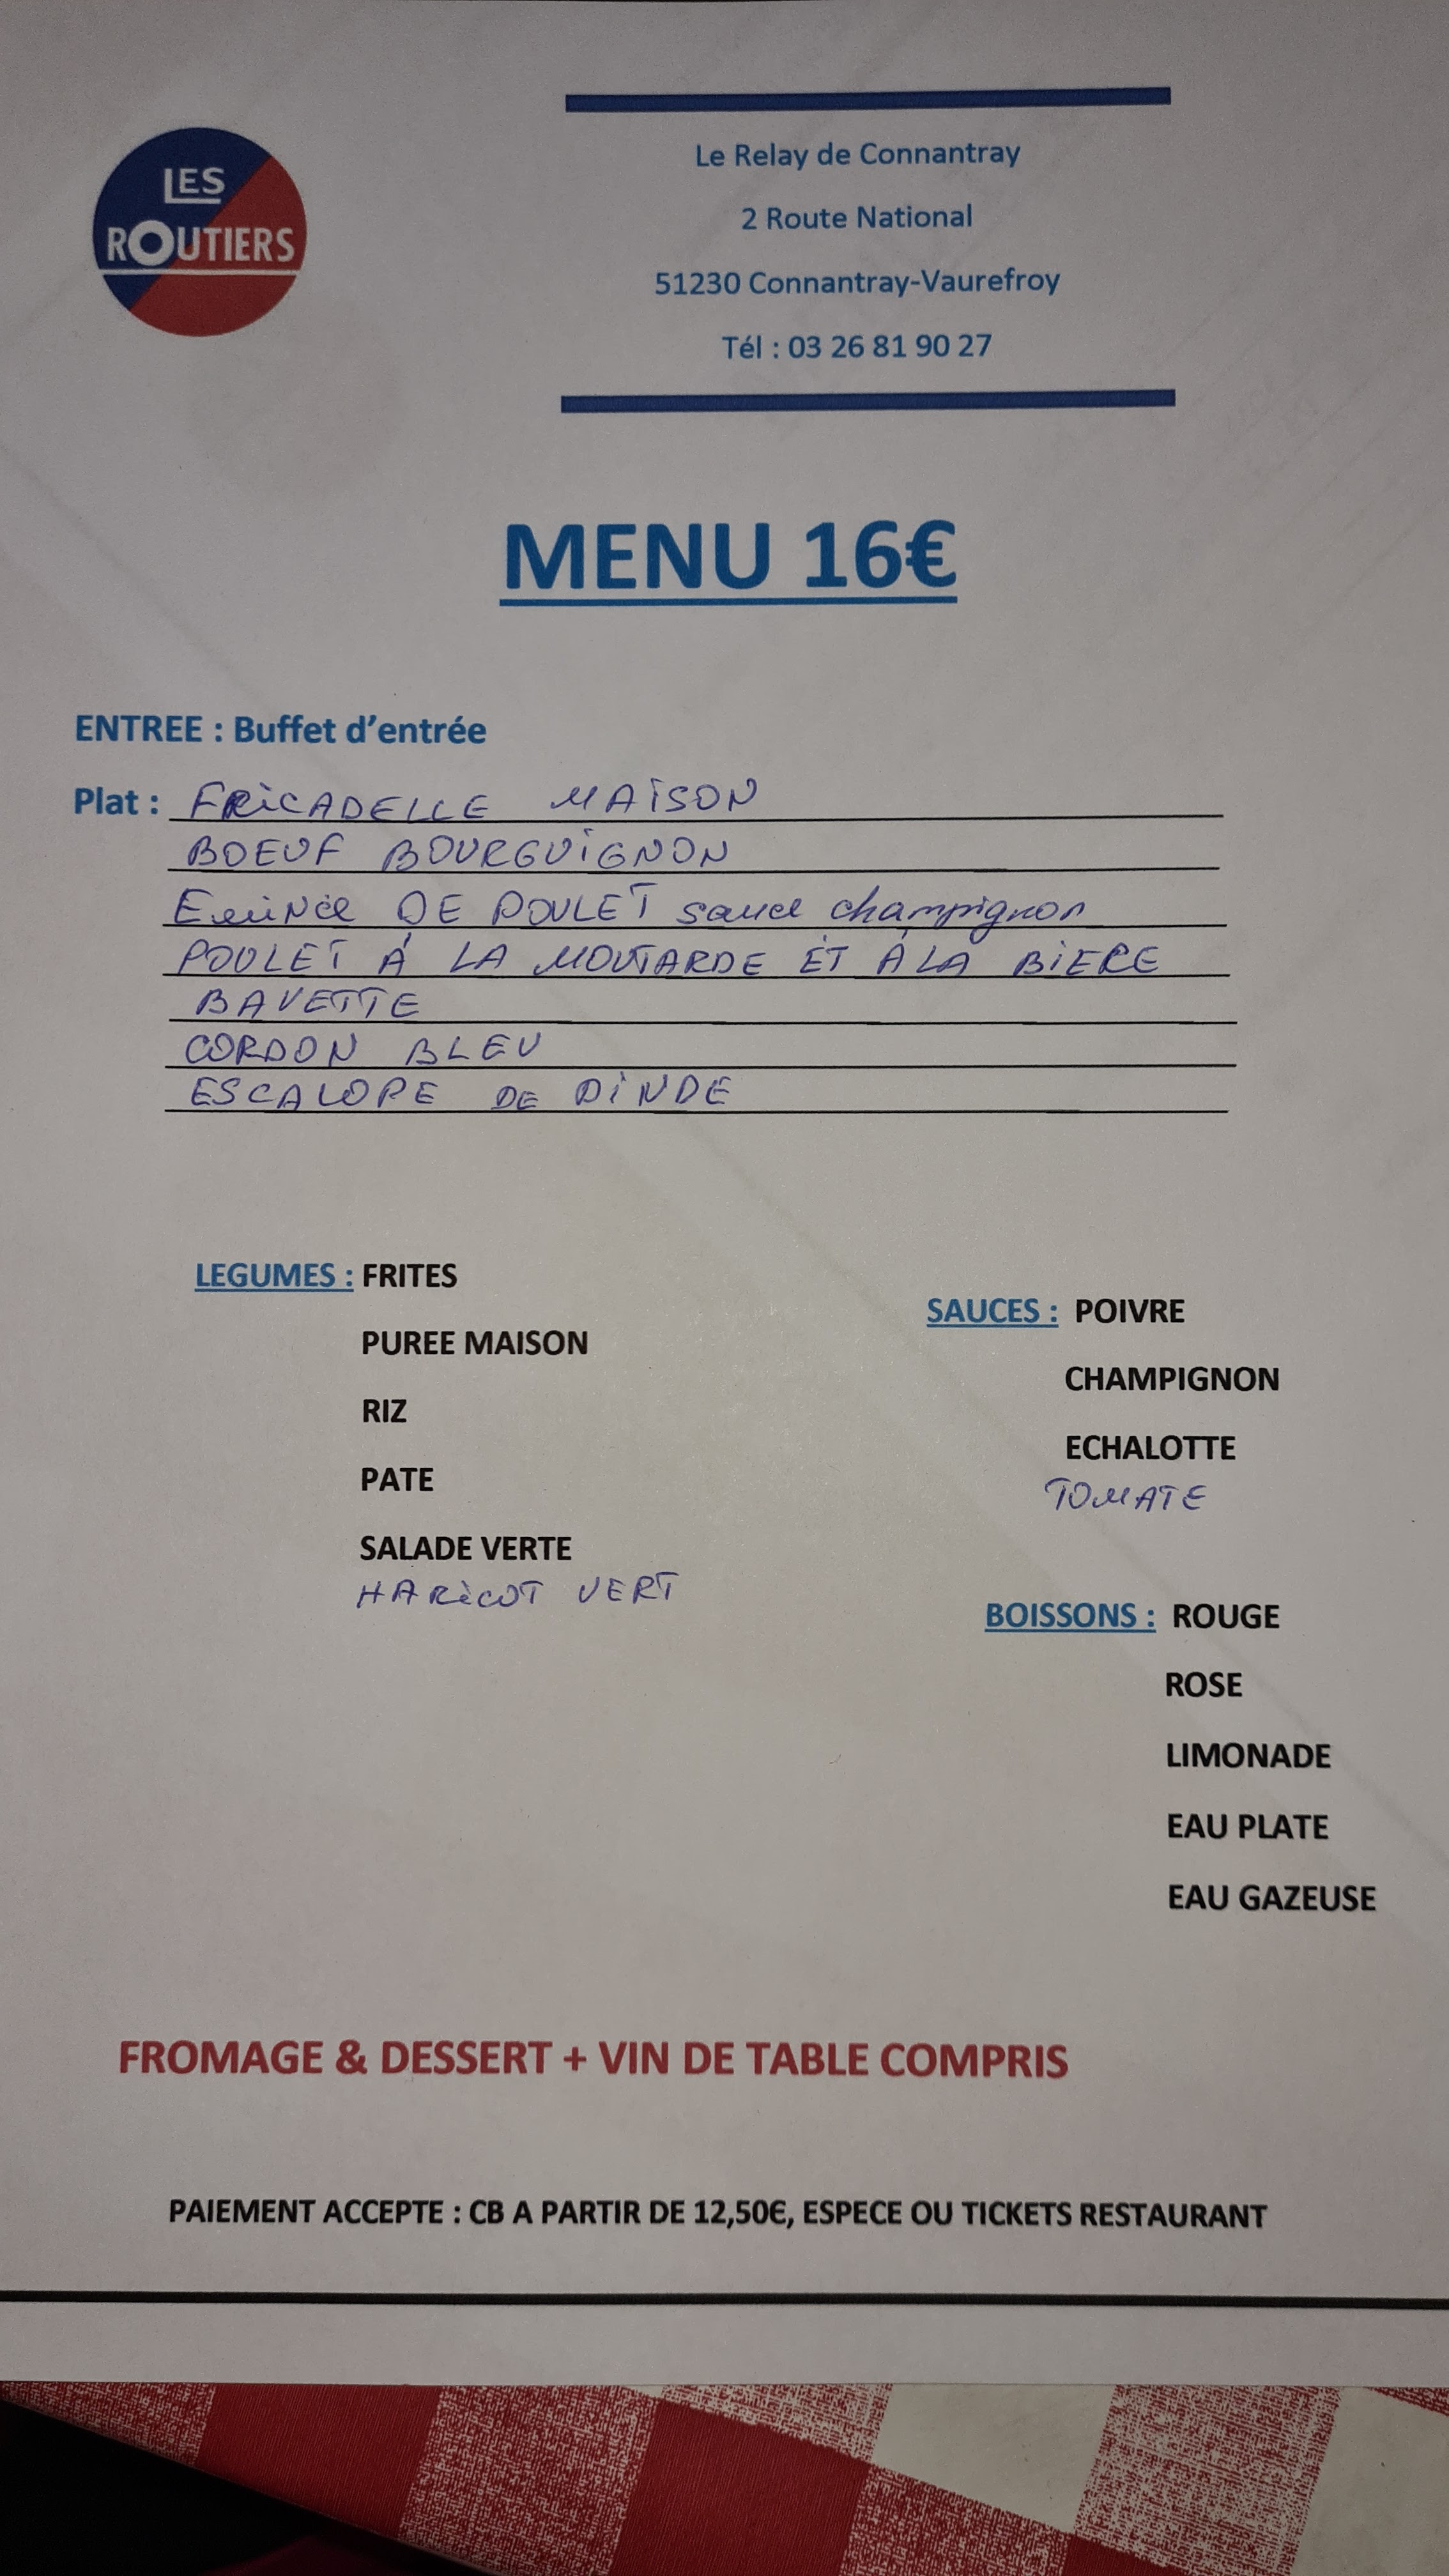 LES
ROUTIERS
Le Relay de Connantray
2 Route National
51230 Connantray-Vaurefroy
Tél : 03 26 81 90 27
MENU 16€
ENTREE : Buffet d'entrée
Plat : FRICADELLE MAISON
BOEUF BOURGUIGNON
Emincé DE POULET sauce champignon
POULET À LA MOUTARDE ET À LA BIERE
BAVETTE
CORDON BLEU
ESCALOPE DE DINDE
LEGUMES : FRITES
PUREE MAISON
RIZ
PATE
SALADE VERTE
HARICOT VERT
SAUCES : POIVRE
CHAMPIGNON
ECHALOTTE
TOMATE
BOISSONS : ROUGE
ROSE
LIMONADE
EAU PLATE
EAU GAZEUSE
FROMAGE & DESSERT + VIN DE TABLE COMPRIS
PAIEMENT ACCEPTE : CB A PARTIR DE 12,50€, ESPECE OU TICKETS RESTAURANT